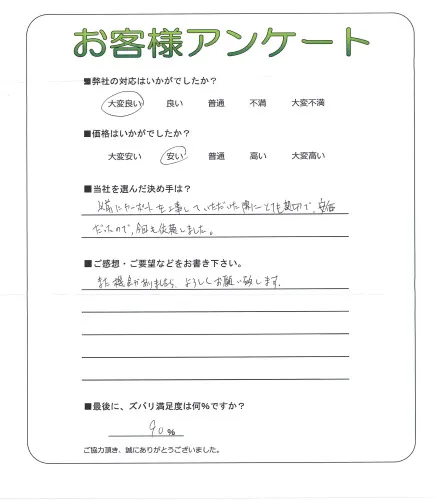 お客様アンケート
■弊社の対応はいかがでしたか？
大変良い 良い 普通 不満 大変不満
■価格はいかがでしたか？
大変安い 安い 普通 高い 大変高い
■当社を選んだ決め手は？
以前にカーポートを工事していただいた際にとても親切で、安価
だったので、今回も依頼しました。
■ご感想・ご要望などをお書き下さい。
また機会がありましたら、よろしくお願い致します。
■最後に、ズバリ満足度は何%ですか？
90%
ご協力頂き、誠にありがとうございました。